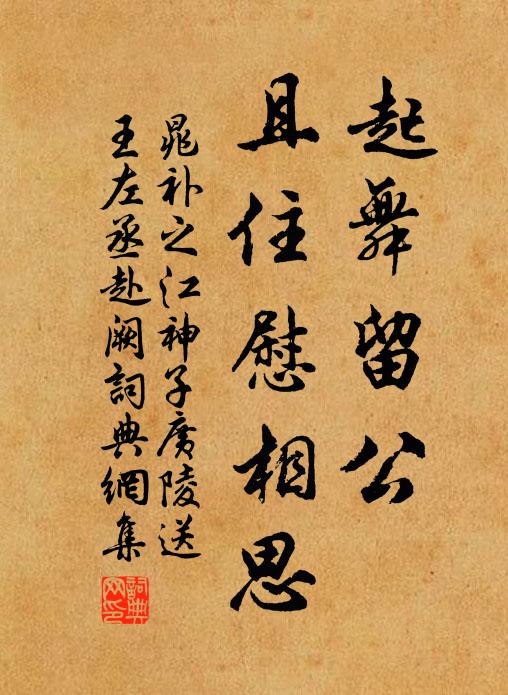 起舞留公
且住慰相思
晁补之江神子廣陵送
王左丞赴阙詞典網集
詞典网印